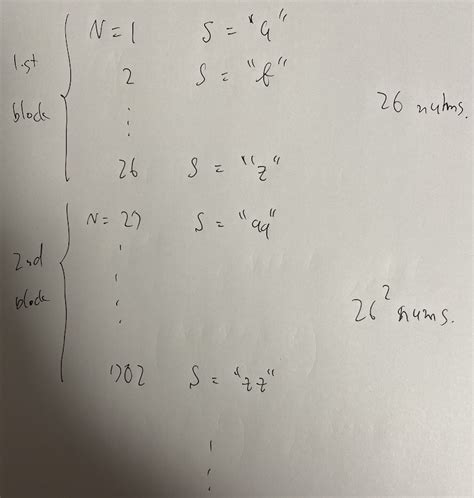 1st block
N = 1 S = "a"
2 S = "b"
⋮
26 S = "z"
26 nums.
2nd block
N = 27 S = "aa"
⋮
702 S = "zz"
26² nums.
⋮